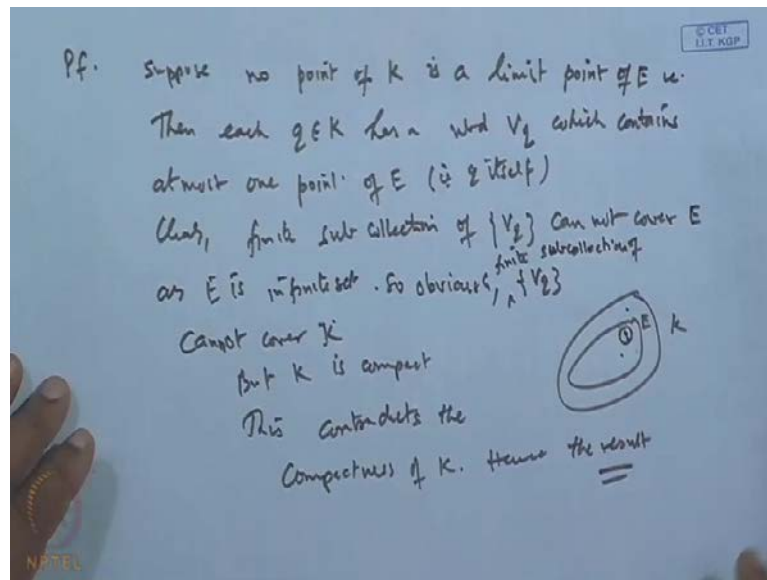 © CET
I.I.T. KGP
Pf. Suppose no point of K is a limit point of E ie.
Then each q ∈ K has a nbd Vq which contains
atmost one point. of E (ie q itself)
Clearly, finite sub collection of {Vq} can not cover E
as E is infinite set. So obviously, finite subcollection of {Vq}
Cannot cover K
But K is compact
This contradicts the
Compactness of K. Hence the result
E K
NPTEL